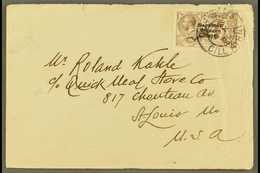 Mr. Roland Kahle
c/o Quick Meal Stove Co
817 Chouteau av
St Louis Mo
U.S.A